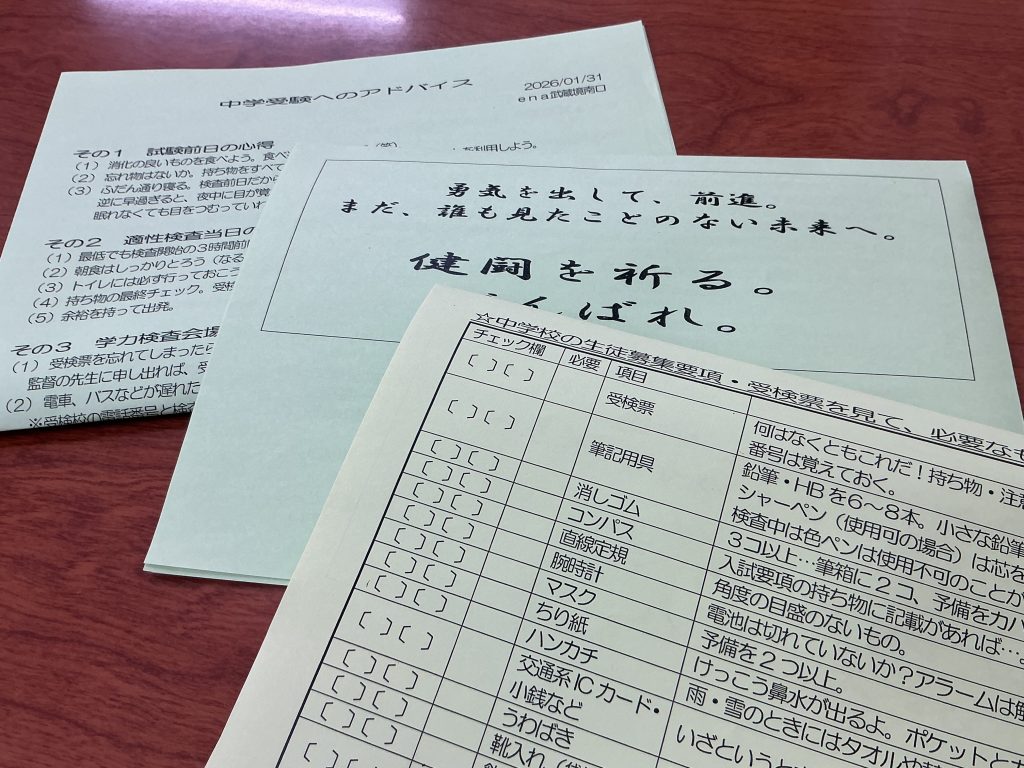 中学受験へのアドバイス
2026/01/31
ena武蔵境南口
その1 試験前日の心得
(1) 消化の良いものを食べよう。食べ
を利用しよう。
(2) 忘れ物はないか。持ち物をすべて
(3) ふだん通り寝る。検査前日だから
逆に早過ぎると、夜中に目が覚
眠れなくても目をつむっていれ
その2 適性検査当日の
(1) 最低でも検査開始の3時間前
(2) 朝食はしっかりとろう(なる
(3) トイレには必ず行っておこう
(4) 持ち物の最終チェック。受検
(5) 余裕を持って出発。
その3 学力検査会場
(1) 受検票を忘れてしまったら
監督の先生に申し出れば、受
(2) 電車、バスなどが遅れた
※受検校の電話番号と検
勇気を出して、前進。
まだ、誰も見たことのない未来へ。
健闘を祈る。
んばれ。
☆中学校の生徒募集要項・受検票を見て、必要なも
チェック欄 必要 項目
[ ] [ ] 受検票 何はなくともこれだ!持ち物・注意
番号は覚えておく。
[ ] [ ] 筆記用具 鉛筆・HBを6~8本。小さな鉛筆
シャーペン(使用可の場合)は芯を
検査中は色ペンは使用不可のことが
[ ] [ ] 消しゴム 3コ以上…筆箱に2コ、予備をカバ
[ ] [ ] コンパス 入試要項の持ち物に記載があれば…。
[ ] [ ] 直線定規 角度の目盛のないもの。
[ ] [ ] 腕時計 電池は切れていないか?アラームは解
[ ] [ ] マスク 予備を2つ以上。
[ ] [ ] ちり紙 けっこう鼻水が出るよ。ポケットとカ
[ ] [ ] ハンカチ 雨・雪のときにはタオルや替
[ ] [ ] 交通系ICカード・
小銭など いざという
[ ] [ ] うわばき
[ ] [ ] 靴入れ(袋